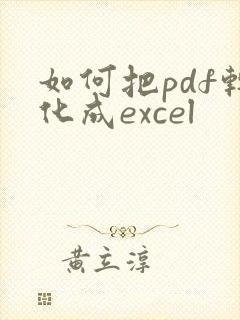 如何把pdf轉
化成excel
黄立淳